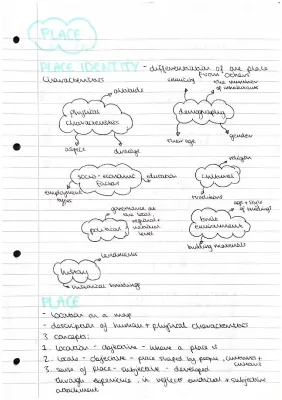 PLACE
PLACE IDENTITY - differentiation of one place
from 'other'
characteristics
altitude
physical
characteristics
aspect
drainage
ethnicity
the number
of inhabitants
demography
their age
gender
socio-economic
factors
education
employment
types
religion
cultural
traditions
governance at
the local,
regional +
national
level
political
age + style
of buildings
built
environment
building materials
landmarks
history
historical buildings
PLACE
- location on a map
- description of human + physical characteristics
3 concepts:
1. location - objective - where a place is
2. locale - objective - place shaped by people, cultures +
customs
3. sense of place - subjective - developed
through experience, it reflects emotional + subjective
attachment